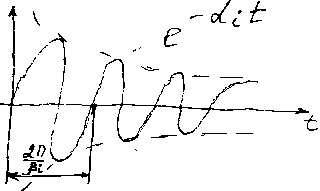 e^{-α_i t}
t
2π
βi